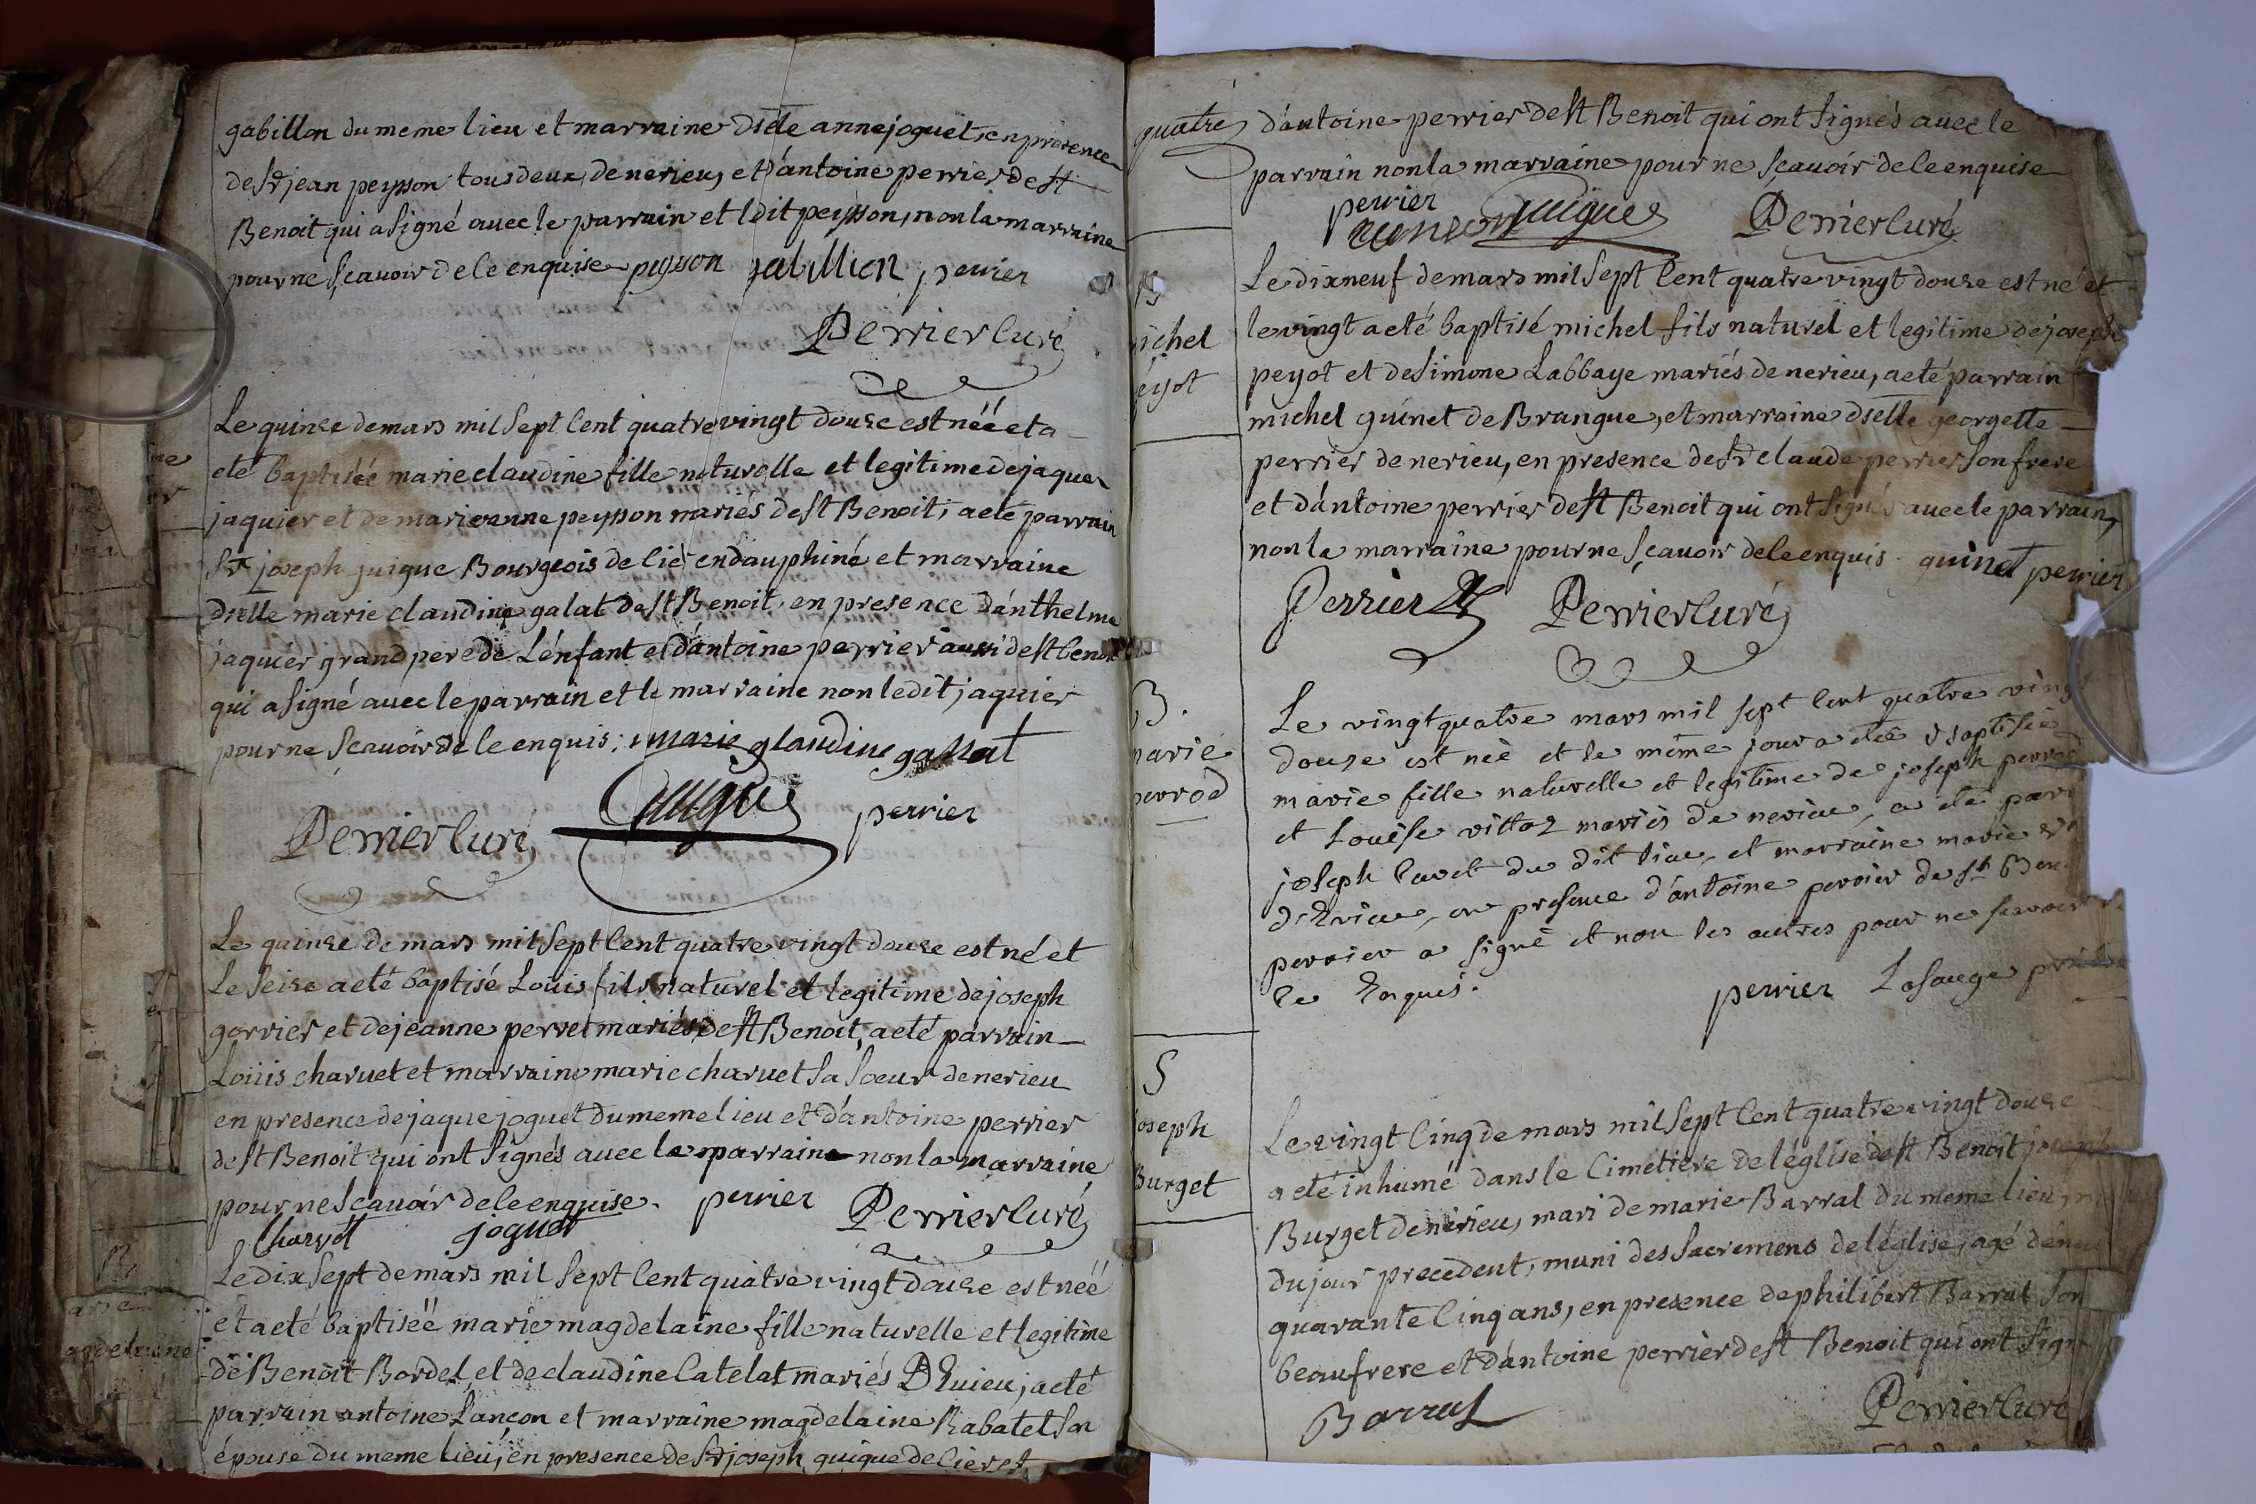 gabillon du meme lieu et marraine dselle anne joguet, en presence
de Sr jean peysson tous deux de nerieu, et d'antoine perrier de st
Benoit qui a signé avec le parrain et ledit peysson, non la marraine
pour ne sçavoir de le enquise peysson gabillion perrier
Perrier Curé
Le quinze de mars mil sept Cent quatre vingt douze est néé et a
eté baptiséé marie claudine fille naturelle et legitime de jaque
jaquier et de marie anne peysson mariés de st Benoit, a eté parrain
Sr joseph juigue Bourgeois de Cier en dauphiné et marraine
dselle marie claudine galat de st Benoit, en presence d'anthelme
jaquier grand pere de L'enfant et d'antoine perrier aussi de st benoit
qui a signé avec le parrain et la marraine non ledit jaquier
pour ne sçavoir de le enquis; marie glaudine gallat
Perrier Curé Juigue perrier
Le quinze de mars mil sept Cent quatre vingt douze est né et
Le seize a eté baptisé Louis fils naturel et legitime de joseph
gorrier et de jeanne perret mariés de st Benoit, a eté parrain
Loüis charvet et marraine marie charvet sa soeur de nerieu
en presence de jaque joguet du meme lieu et d'antoine perrier
de st Benoit qui ont signés avec le parrain non la marraine
pour ne sçavoir de le enquise. perrier Perrier Curé
Charvet joguet
Le dix sept de mars mil sept Cent quatre vingt douze est néé
et a eté baptiséé marie magdelaine fille naturelle et legitime
de Benoit Bordel et de claudine Catelat mariés D'Evieu, a eté
parrain antoine Lançon et marraine magdelaine Rabatel son
épouse du meme lieu, en presence de Sr joseph quique de Cier et
quatre d'antoine perrier de st Benoit qui ont signés avec le
parrain non la marraine pour ne sçavoir de le enquise
perrier
Juigue Perrier Curé
ichel
eyot
Le dix neuf de mars mil sept Cent quatre vingt douze est né et
le vingt a eté baptisé michel fils naturel et legitime de joseph
peyot et de simone Labbaye mariés de nerieu, a eté parrain
michel guinet de Brangue, et marraine dselle georgette
perrier de nerieu, en presence de Sr claude perrier son frere
et d'antoine perrier de st Benoit qui ont signés avec le parrain,
non la marraine pour ne sçavoir de le enquis. guinet perrier
Perrier Perrier Curé
B.
marie
perrod
Le vingt quatre mars mil sept Cent quatre vingt
douze est néé et le même jour a eté Baptisée
marie fille naturelle et legitime de joseph perrod
et Louise vittoz mariés de nerieu, a été
joseph Cavet du dit lieu, et marraine marie
d'Evieu, en presence d'antoine perrier de st Ben
perrier a signé et non les autres pour ne scavoir
le Enquis.
perrier Lasauge prêtre
S
joseph
Burget
Le vingt Cinq de mars mil sept Cent quatre vingt douze
a eté inhumé dans le Cimetiere de l'église de st Benoit joseph
Burget de nerieu, mari de marie Barral du meme lieu,
du jour precedent, muni des sacremens de l'église, agé d'en
quarante Cinq ans, en presence de philibert Barral son
beaufrere et d'antoine perrier de st Benoit qui ont sign
Barral Perrier Curé